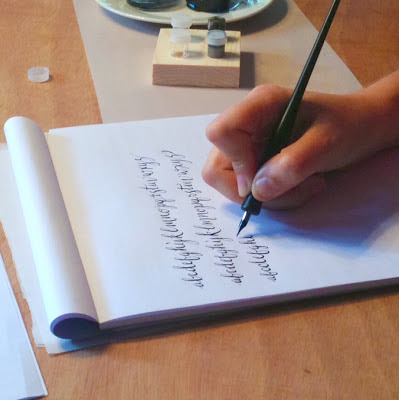 abcdefghijklmnopqrstuvwxyz
abcdefghijklmnopqrstuvwxyz
abcdefgh